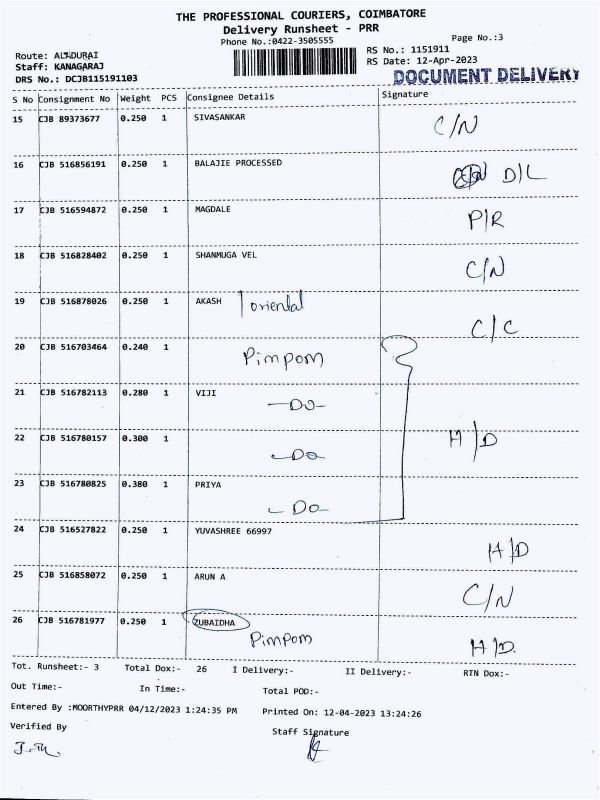 THE PROFESSIONAL COURIERS, COIMBATORE
Delivery Runsheet - PRR
Phone No.:0422-3505555 Page No.:3
Route: ALTDURAI RS No.: 1151911
Staff: KANAGARAJ RS Date: 12-Apr-2023
DRS No.: DCJB115191103 DOCUMENT DELIVERY
S No Consignment No Weight PCS Consignee Details Signature
15 CJB 89373677 0.250 1 SIVASANKAR C/N
16 CJB 516856191 0.250 1 BALAJIE PROCESSED D/L
17 CJB 516594872 0.250 1 MAGDALE P/R
18 CJB 516828402 0.250 1 SHANMUGA VEL C/N
19 CJB 516878026 0.250 1 AKASH oriental C/C
20 CJB 516703464 0.240 1 Pimpom
21 CJB 516782113 0.280 1 VIJI
-Do-
22 CJB 516780157 0.300 1 -Do- H/D
23 CJB 516780825 0.380 1 PRIYA
-Do-
24 CJB 516527822 0.250 1 YUVASHREE 66997 H/D
25 CJB 516858072 0.250 1 ARUN A C/N
26 CJB 516781977 0.250 1 ZUBAIDHA
Pimpom H/D.
Tot. Runsheet:- 3 Total Dox:- 26 I Delivery:- II Delivery:- RTN Dox:-
Out Time:- In Time:- Total POD:-
Entered By :MOORTHYPRR 04/12/2023 1:24:35 PM Printed On: 12-04-2023 13:24:26
Verified By Staff Signature